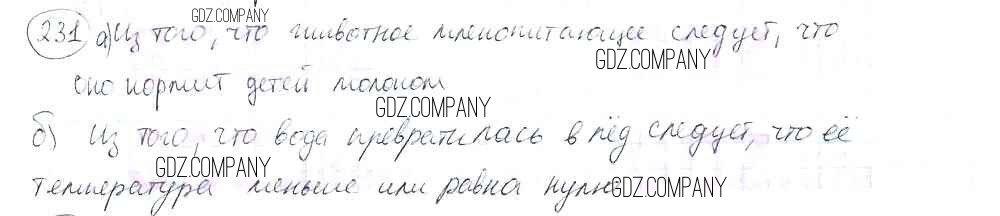 GDZ.COMPANY
231 а) Из того, что животное млекопитающее следует, что
GDZ.COMPANY
оно кормит детей молоком
GDZ.COMPANY
б) Из того, что вода превратилась в лёд следует, что её
GDZ.COMPANY
температура меньше или равна нулю
GDZ.COMPANY